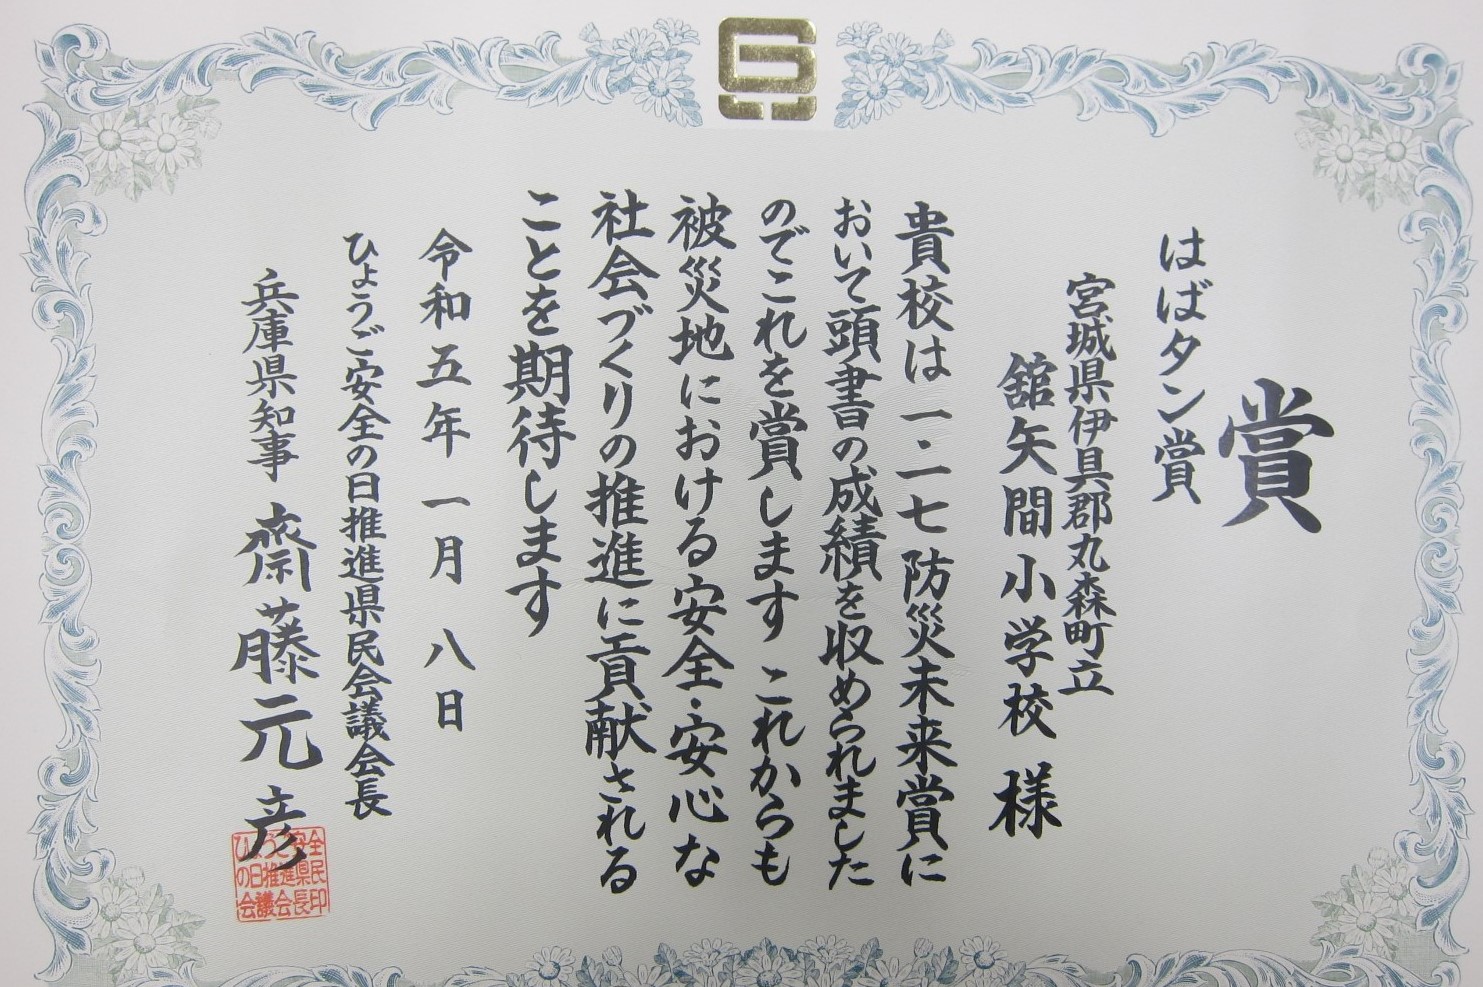 賞
はばタン賞
宮城県伊具郡丸森町立
舘矢間小学校 様
貴校は一・一七防災未来賞に
おいて頭書の成績を収められました
のでこれを賞します これからも
被災地における安全・安心な
社会づくりの推進に貢献される
ことを期待します
令和五年一月八日
ひょうご安全の日推進県民会議会長
兵庫県知事 齋藤元彦
ひょうご安全
の日推進県民
会議会長印